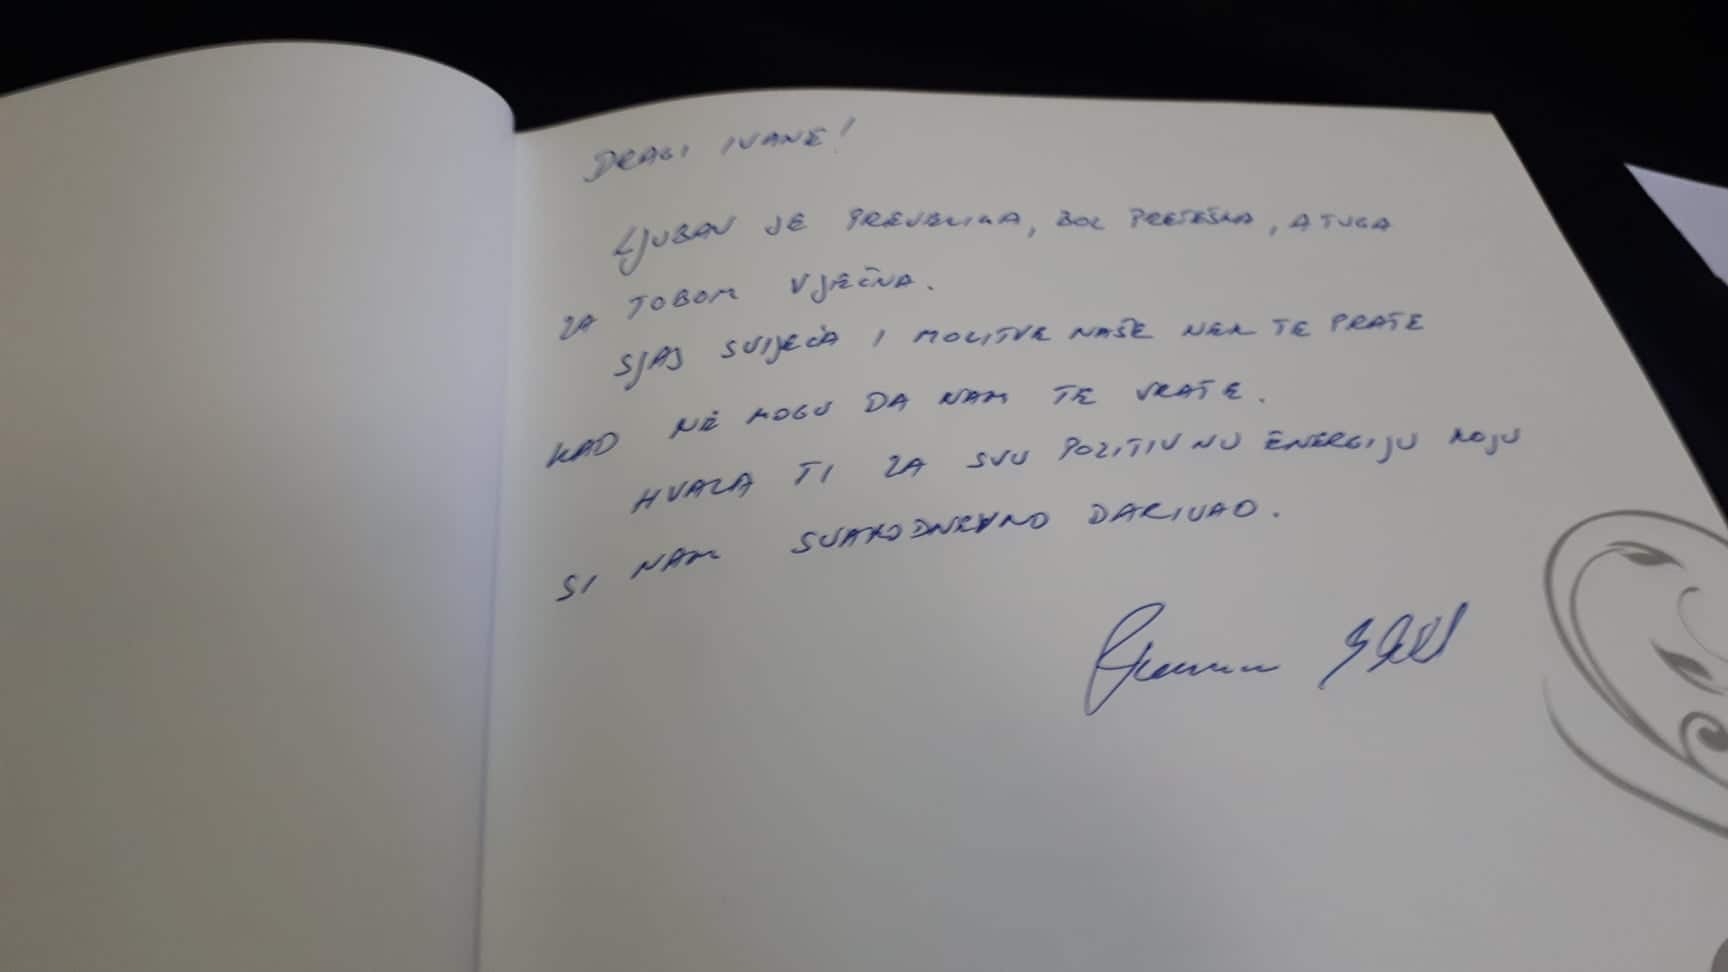 DRAGI IVANE!
LJUBAV JE PREVELIKA, BOL PRETEŠKA, A TUGA
ZA TOBOM VJEČNA.
SJAJ SVIJEĆA I MOLITVE NAŠE NEK TE PRATE
KAD NE MOGU DA NAM TE VRATE.
HVALA TI ZA SVU POZITIVNU ENERGIJU KOJU
SI NAM SVAKODNEVNO DARIVAO.